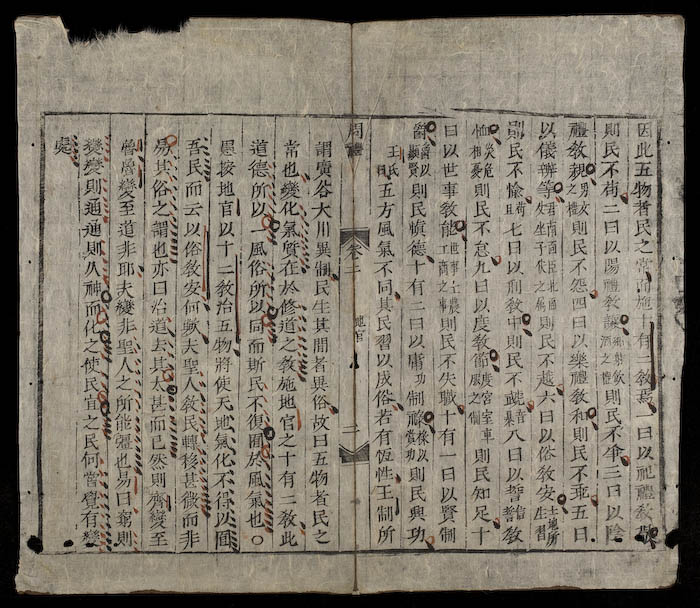 因此五物者民之常而施十有二教焉一曰以祀禮教敬
則民不苟二曰以陽禮教讓鄉射飲酒之禮則民不爭三曰以陰
禮教親男女之禮則民不怨四曰以樂禮教和則民不乖五曰
以儀辨等君南面臣北面父坐子伏之屬則民不越六曰以俗教安土地所生習
則民不愉苟且七曰以刑教中則民不虣音暴八曰以誓教
恤災危相憂則民不怠九曰以度教節宮室車服之制則民知足十
曰以世事教能世事士農工商之事則民不失職十有一曰以賢制
爵爵以顯賢則民慎德十有二曰以庸功制祿祿以賞功則民興功
王氏曰五方風氣不同其民習以成俗若有恆性王制所
周禮 卷二 地官 二
謂廣谷大川異制民生其間者異俗故曰五物者民之
常也變化氣質在於修道之教施地官之十有二教此
道德所以一風俗所以同而斯民不復囿於風氣也○
愚按地官以十二教治五物將使天地氣化不得以囿
吾民而云以俗教安何歟夫聖人教民轉移甚微而非
易其俗之謂也亦曰治道去其太甚而已然則齊變至
魯魯變至道非耶夫變非聖人之所能彊也易曰窮則
變變則通通則久神而化之使民宜之民何嘗覺有變
處